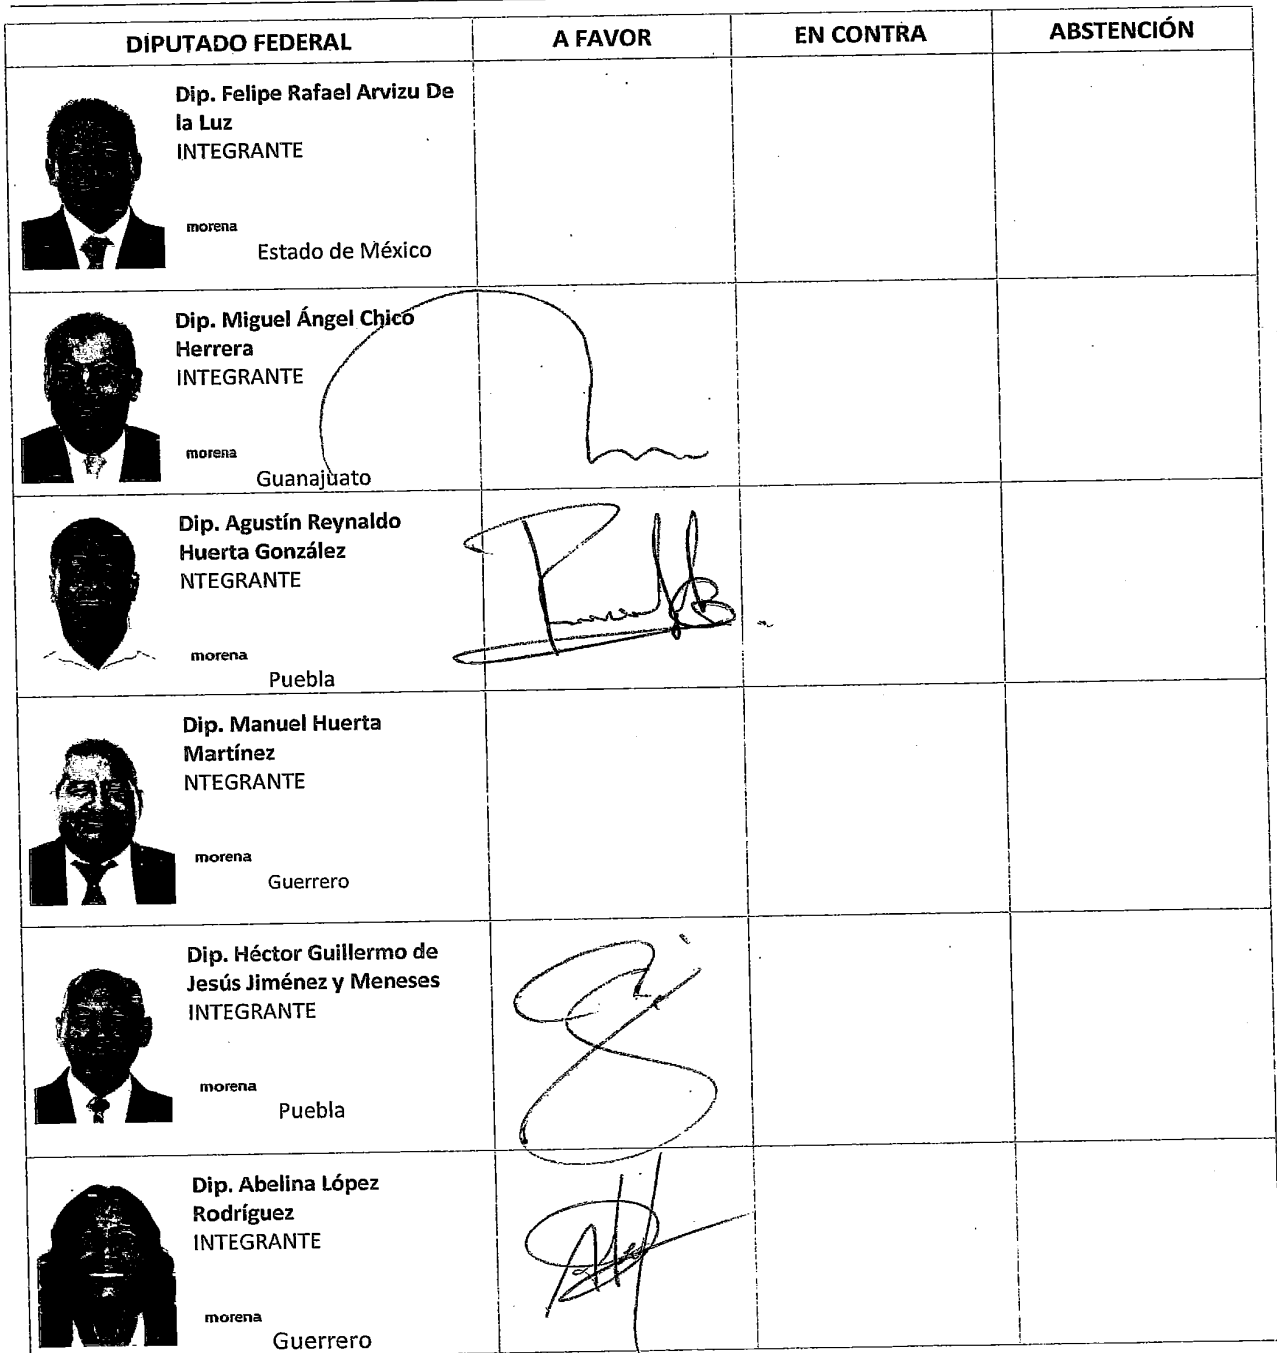 DIPUTADO FEDERAL A FAVOR EN CONTRA ABSTENCIÓN
Dip. Felipe Rafael Arvizu De
la Luz
INTEGRANTE
morena
Estado de México
Dip. Miguel Ángel Chico
Herrera
INTEGRANTE
morena
Guanajuato
Dip. Agustín Reynaldo
Huerta González
NTEGRANTE
morena
Puebla
Dip. Manuel Huerta
Martínez
NTEGRANTE
morena
Guerrero
Dip. Héctor Guillermo de
Jesús Jiménez y Meneses
INTEGRANTE
morena
Puebla
Dip. Abelina López
Rodríguez
INTEGRANTE
morena
Guerrero